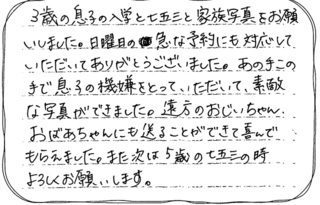 3歳の息子の入学と七五三と家族写真をお願
いしました。日曜日の急な予約にも対応して
いただいてありがとうございました。あの手この
手で息子の機嫌をとっていただいて、素敵
な写真ができました。遠方のおじいちゃん
おばあちゃんにも送ることができて喜んで
もらえました。また次は5歳の七五三の時
よろしくお願いします。